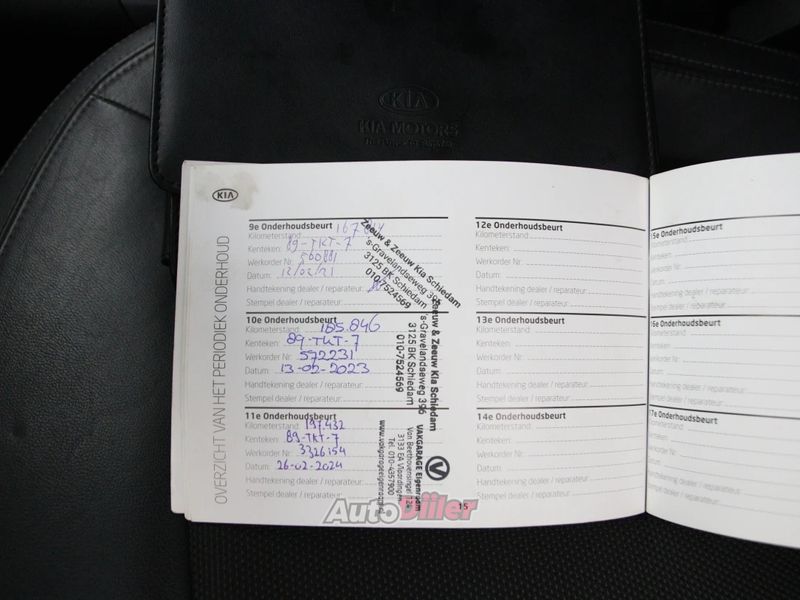 KIA
KIA MOTORS
KIA
OVERZICHT VAN HET PERIODIEK ONDERHOUD
9e Onderhoudsbeurt
Kilometerstand
Kenteken: 89-TKT-7
Werkorder Nr: 560881
Datum
Handtekening dealer / reparateur:
Stempel dealer / reparateur:
Zeeuw & Zeeuw Kia Schiedam
's-Gravelandseweg 396
3125 BK Schiedam
010-7524569
10e Onderhoudsbeurt
Kilometerstand 185.846
Kenteken: 89-TKT-7
Werkorder Nr: 572231
Datum 13-02-2023
Handtekening dealer / reparateur:
Stempel dealer / reparateur:
Zeeuw & Zeeuw Kia Schiedam
's-Gravelandseweg 396
3125 BK Schiedam
010-7524569
11e Onderhoudsbeurt
Kilometerstand 197.432
Kenteken: 89-TKT-7
Werkorder Nr: 3326154
Datum 26-02-2024
Handtekening dealer / reparateur:
Stempel dealer / reparateur:
VAKGARAGE Eigenraam
Van Beethovensingel
3133 EA Vlaardingen
Tel. 010-4357900
12e Onderhoudsbeurt
Kilometerstand
Kenteken:
Werkorder Nr:
Datum
Handtekening dealer / reparateur:
Stempel dealer / reparateur:
13e Onderhoudsbeurt
Kilometerstand
Kenteken:
Werkorder Nr:
Datum
Handtekening dealer / reparateur:
Stempel dealer / reparateur:
14e Onderhoudsbeurt
Kilometerstand
Kenteken:
Werkorder Nr:
Datum
Handtekening dealer / reparateur:
Stempel dealer / reparateur:
15
15e Onderhoudsbeurt
Kilometerstand
Kenteken:
Werkorder Nr:
Datum
Handtekening dealer / reparateur:
Stempel dealer / reparateur:
16e Onderhoudsbeurt
Kilometerstand
Kenteken:
Werkorder Nr:
Datum
Handtekening dealer / reparateur:
Stempel dealer / reparateur:
17e Onderhoudsbeurt
Kilometerstand
Kenteken:
Werkorder Nr:
Datum
Handtekening dealer / reparateur:
Stempel dealer / reparateur:
AutoDiiler